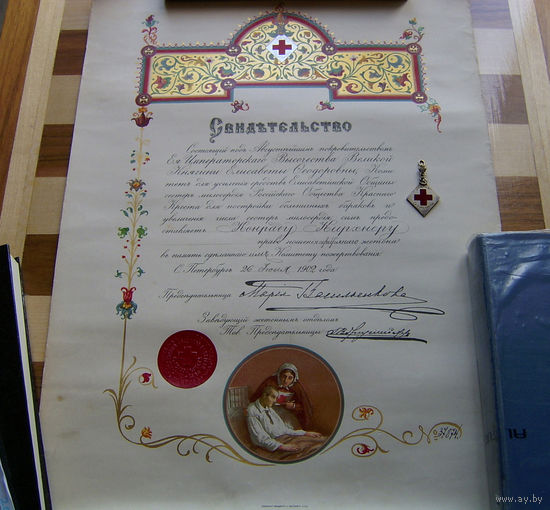 Свидѣтельство
Состоящій подъ Августѣйшимъ покровительствомъ
Ея Императорскаго Высочества Великой
Княгини Елисаветы Ѳеодоровны, Коми-
тетъ для усиленія средствъ Елисаветинской Общины
сестеръ милосердія Россійскаго Общества Краснаго
Креста для постройки больничныхъ бараковъ и
увеличенія числа сестеръ милосердія, симъ предо-
ставляетъ
право ношенія жетона
въ память сдѣланнаго имъ Комитету пожертвованія
С. Петербургъ 26 1902 года
Предсѣдательница Марія Васильчикова
Завѣдующій жетоннымъ отдѣломъ
Тов. Предсѣдательницы
№ 37074
www.ay.by